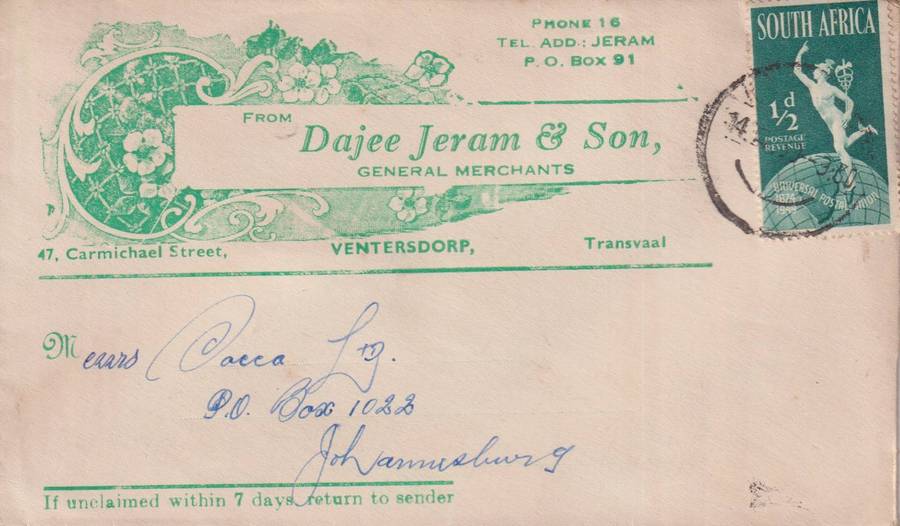 PHONE 16
TEL. ADD.: JERAM
P. O. BOX 91
FROM
Dajee Jeram & Son,
GENERAL MERCHANTS
47, Carmichael Street, VENTERSDORP, Transvaal
SOUTH AFRICA
½d
POSTAGE
REVENUE
UNIVERSAL POSTAL UNION
1874
1949
Messrs Cocca Ltg.
P.O. Box 1022
Johannesburg
If unclaimed within 7 days, return to sender